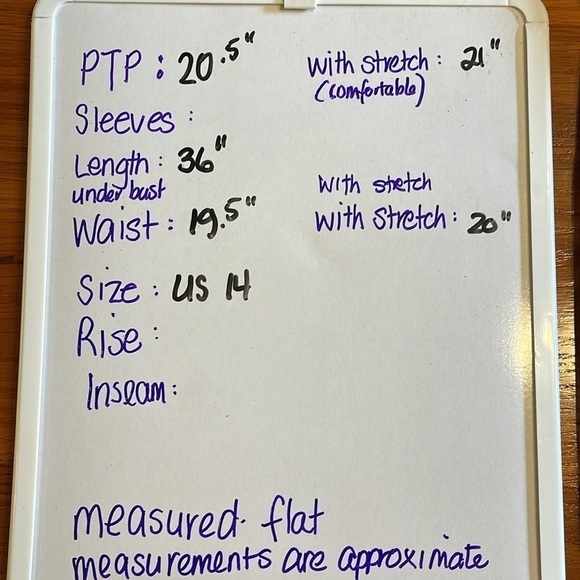 PTP : 20.5" with stretch : 21"
(comfortable)
Sleeves :
Length : 36"
under bust with stretch
Waist : 19.5" with stretch : 20"
Size : US 14
Rise :
Inseam :
measured flat
measurements are approximate